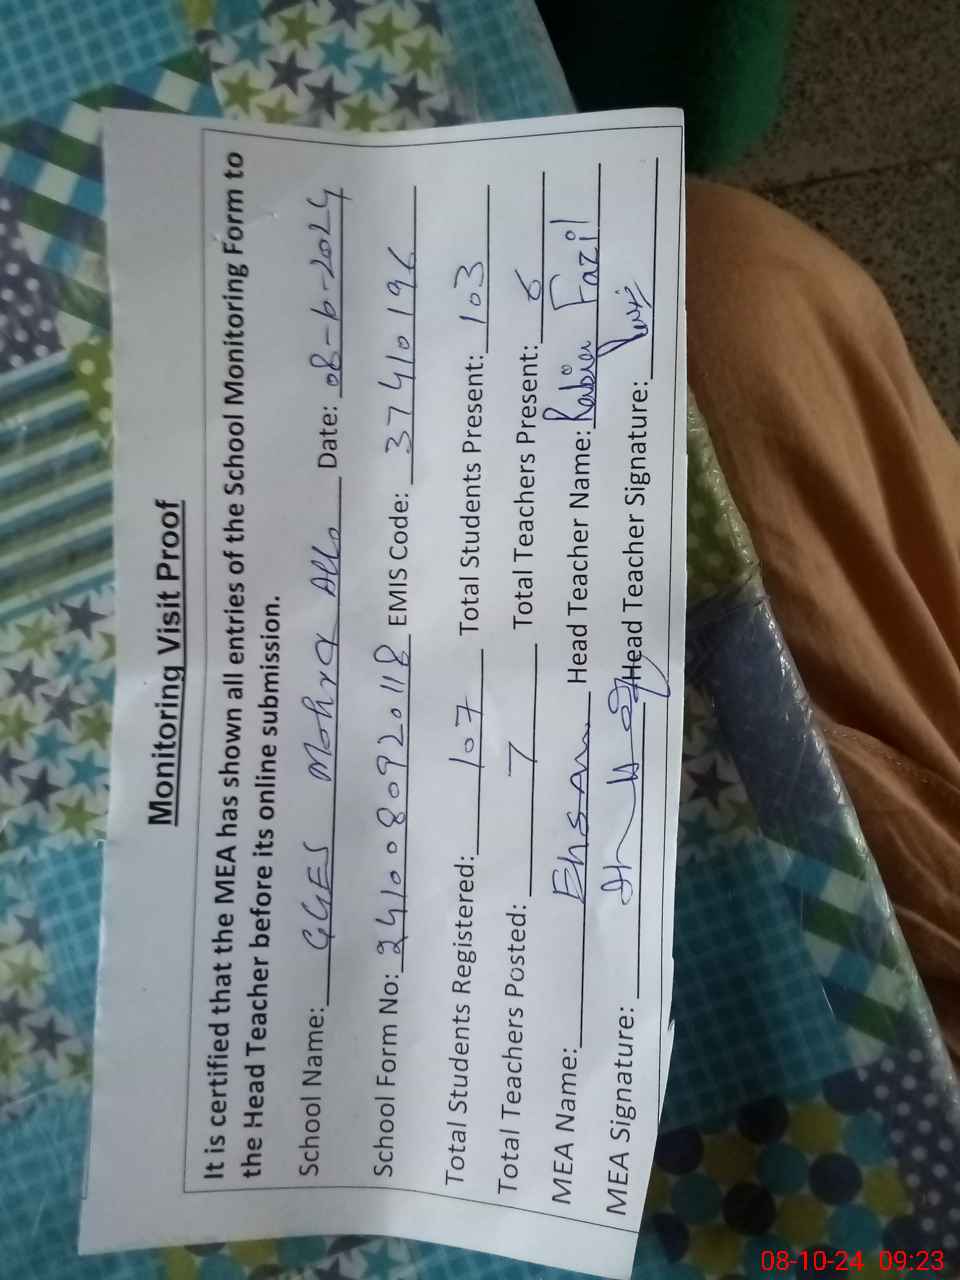 Monitoring Visit Proof
It is certified that the MEA has shown all entries of the School Monitoring Form to
the Head Teacher before its online submission.
School Name: GGES Mohra Allo Date: 08-b-2024
School Form No: 2410080920118 EMIS Code: 37410196
Total Students Registered: 107 Total Students Present: 103
Total Teachers Posted: 7 Total Teachers Present: 6
MEA Name: Ehsan Head Teacher Name: Rabia Fazil
MEA Signature: Head Teacher Signature:
08-10-24 09:23